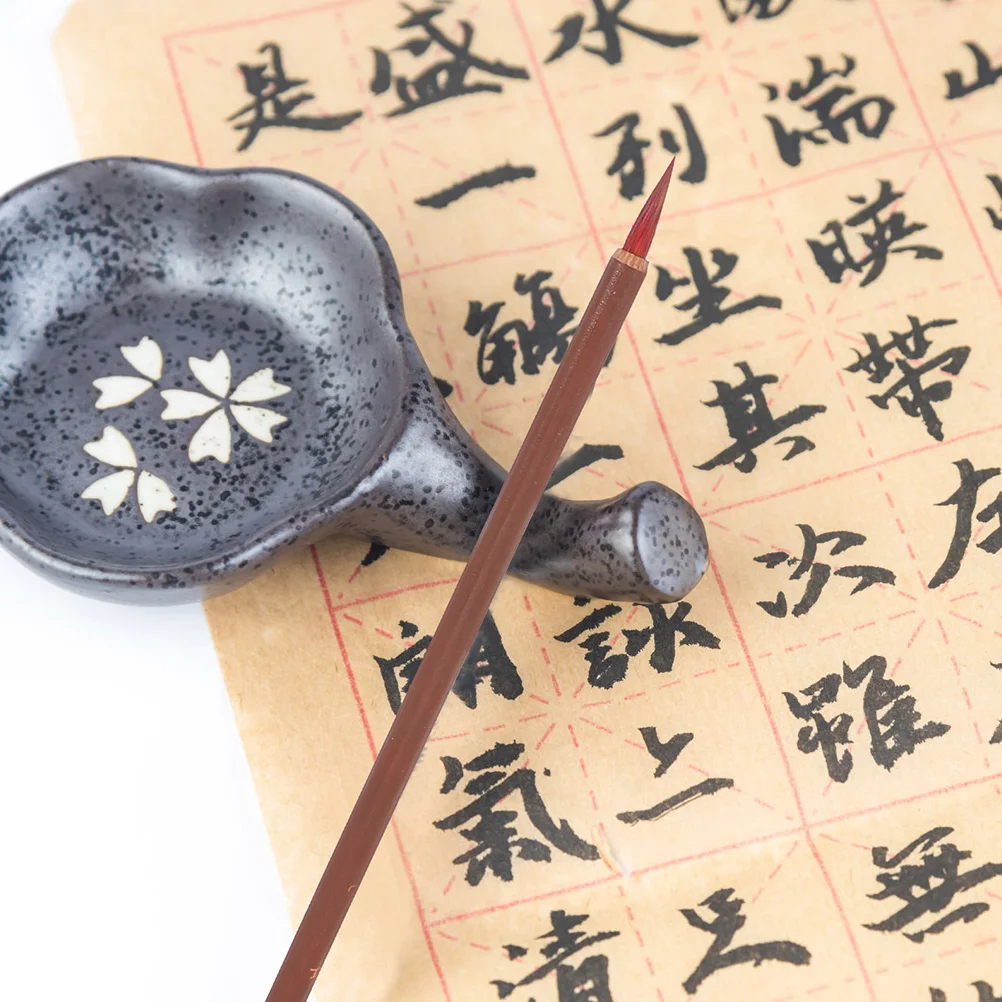 山
湍暎帶左
水列坐其次雖無
盛一觴一詠上足
是朗氣清